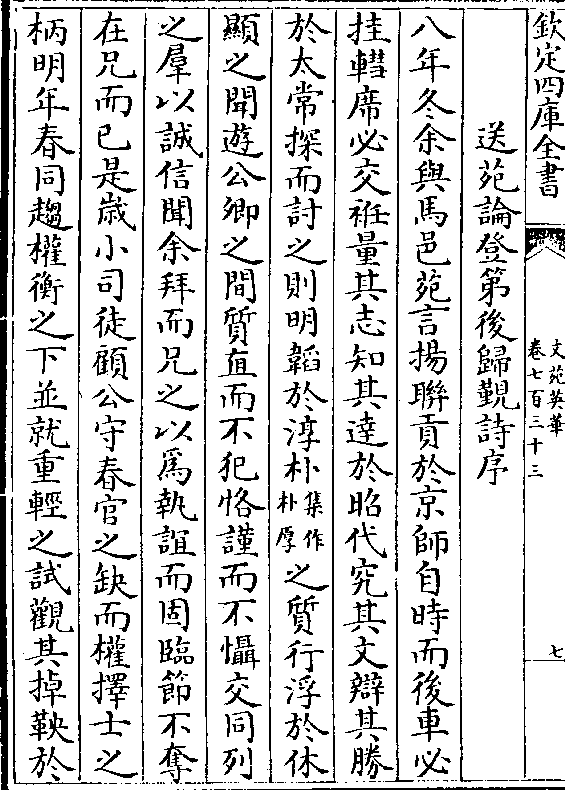 欽定四庫全書
文苑英華
卷七百三十三
七
送苑論登第後歸覲詩序
八年冬余與馬邑苑言揚聯貢於京師自時而後車必
挂轊席必交袵量其志知其達於昭代究其文辯其勝
於太常探而討之則明韜於淳朴集作朴厚之質行浮於休
顯之聞遊公卿之間質直而不犯恪謹而不懾交同列
之羣以誠信聞余拜而兄之以為執誼而固臨節不奪
在兄而已是歲小司徒顧公守春官之缺而權擇士之
柄明年春同趨權衡之下並就重輕之試觀其掉鞅於